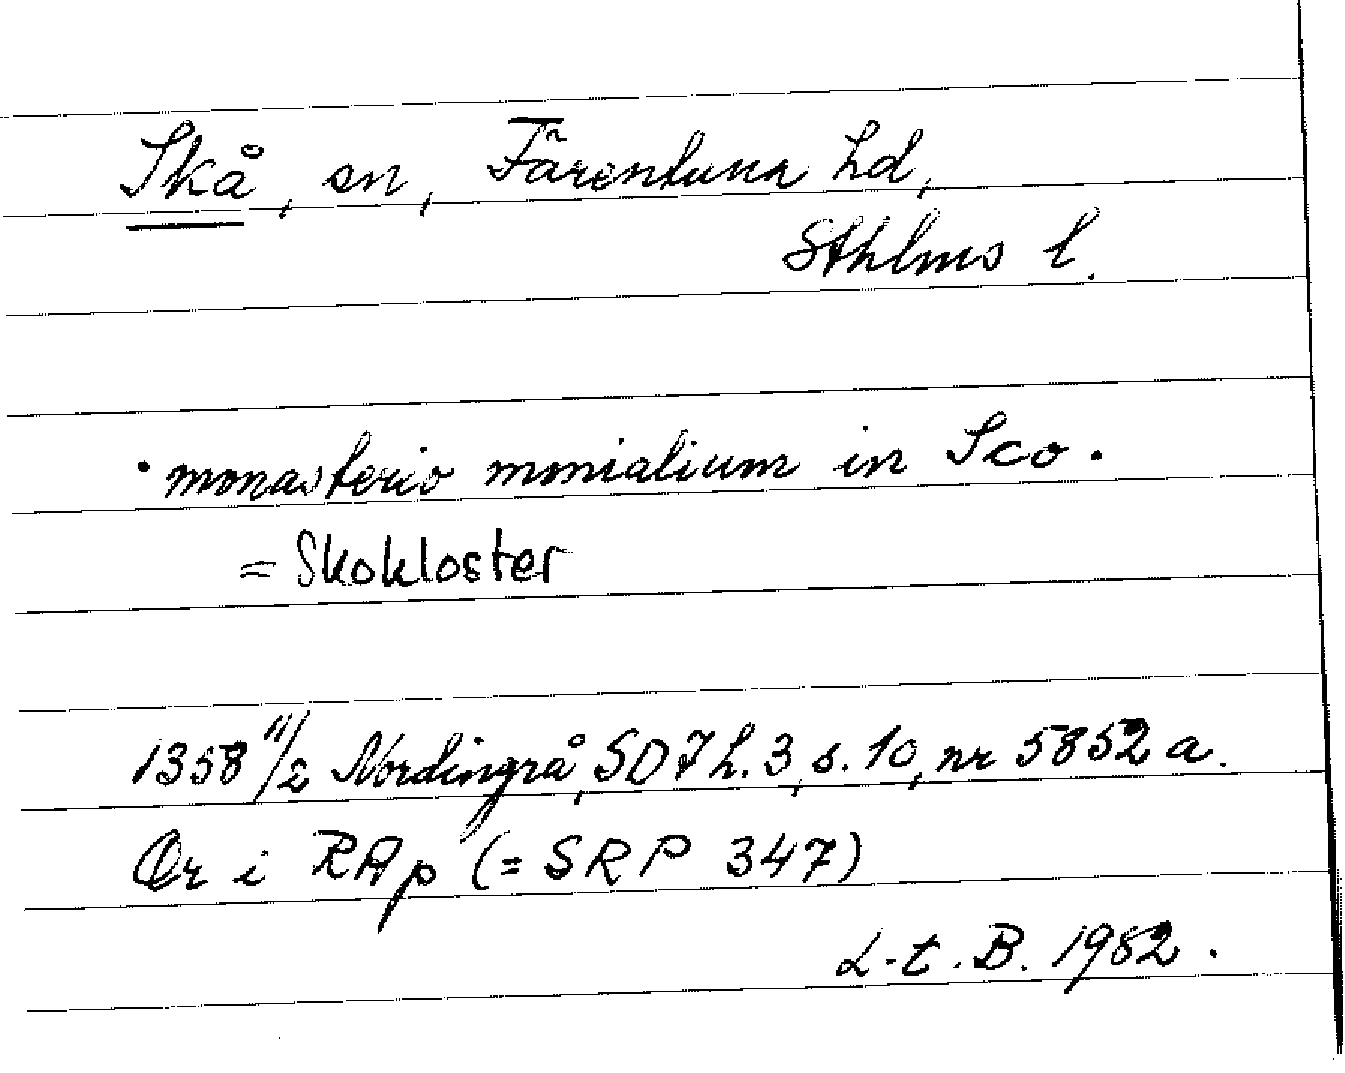 Skå, sn, Färentuna hd,
Sthlms l.
· monasterio monialium in Sco.
= Skokloster
1358 11/2 Nordingrå, SD 7 h. 3, s. 10, nr 5852 a.
Or i RAp (= SRP 347)
L-t. B. 1982.